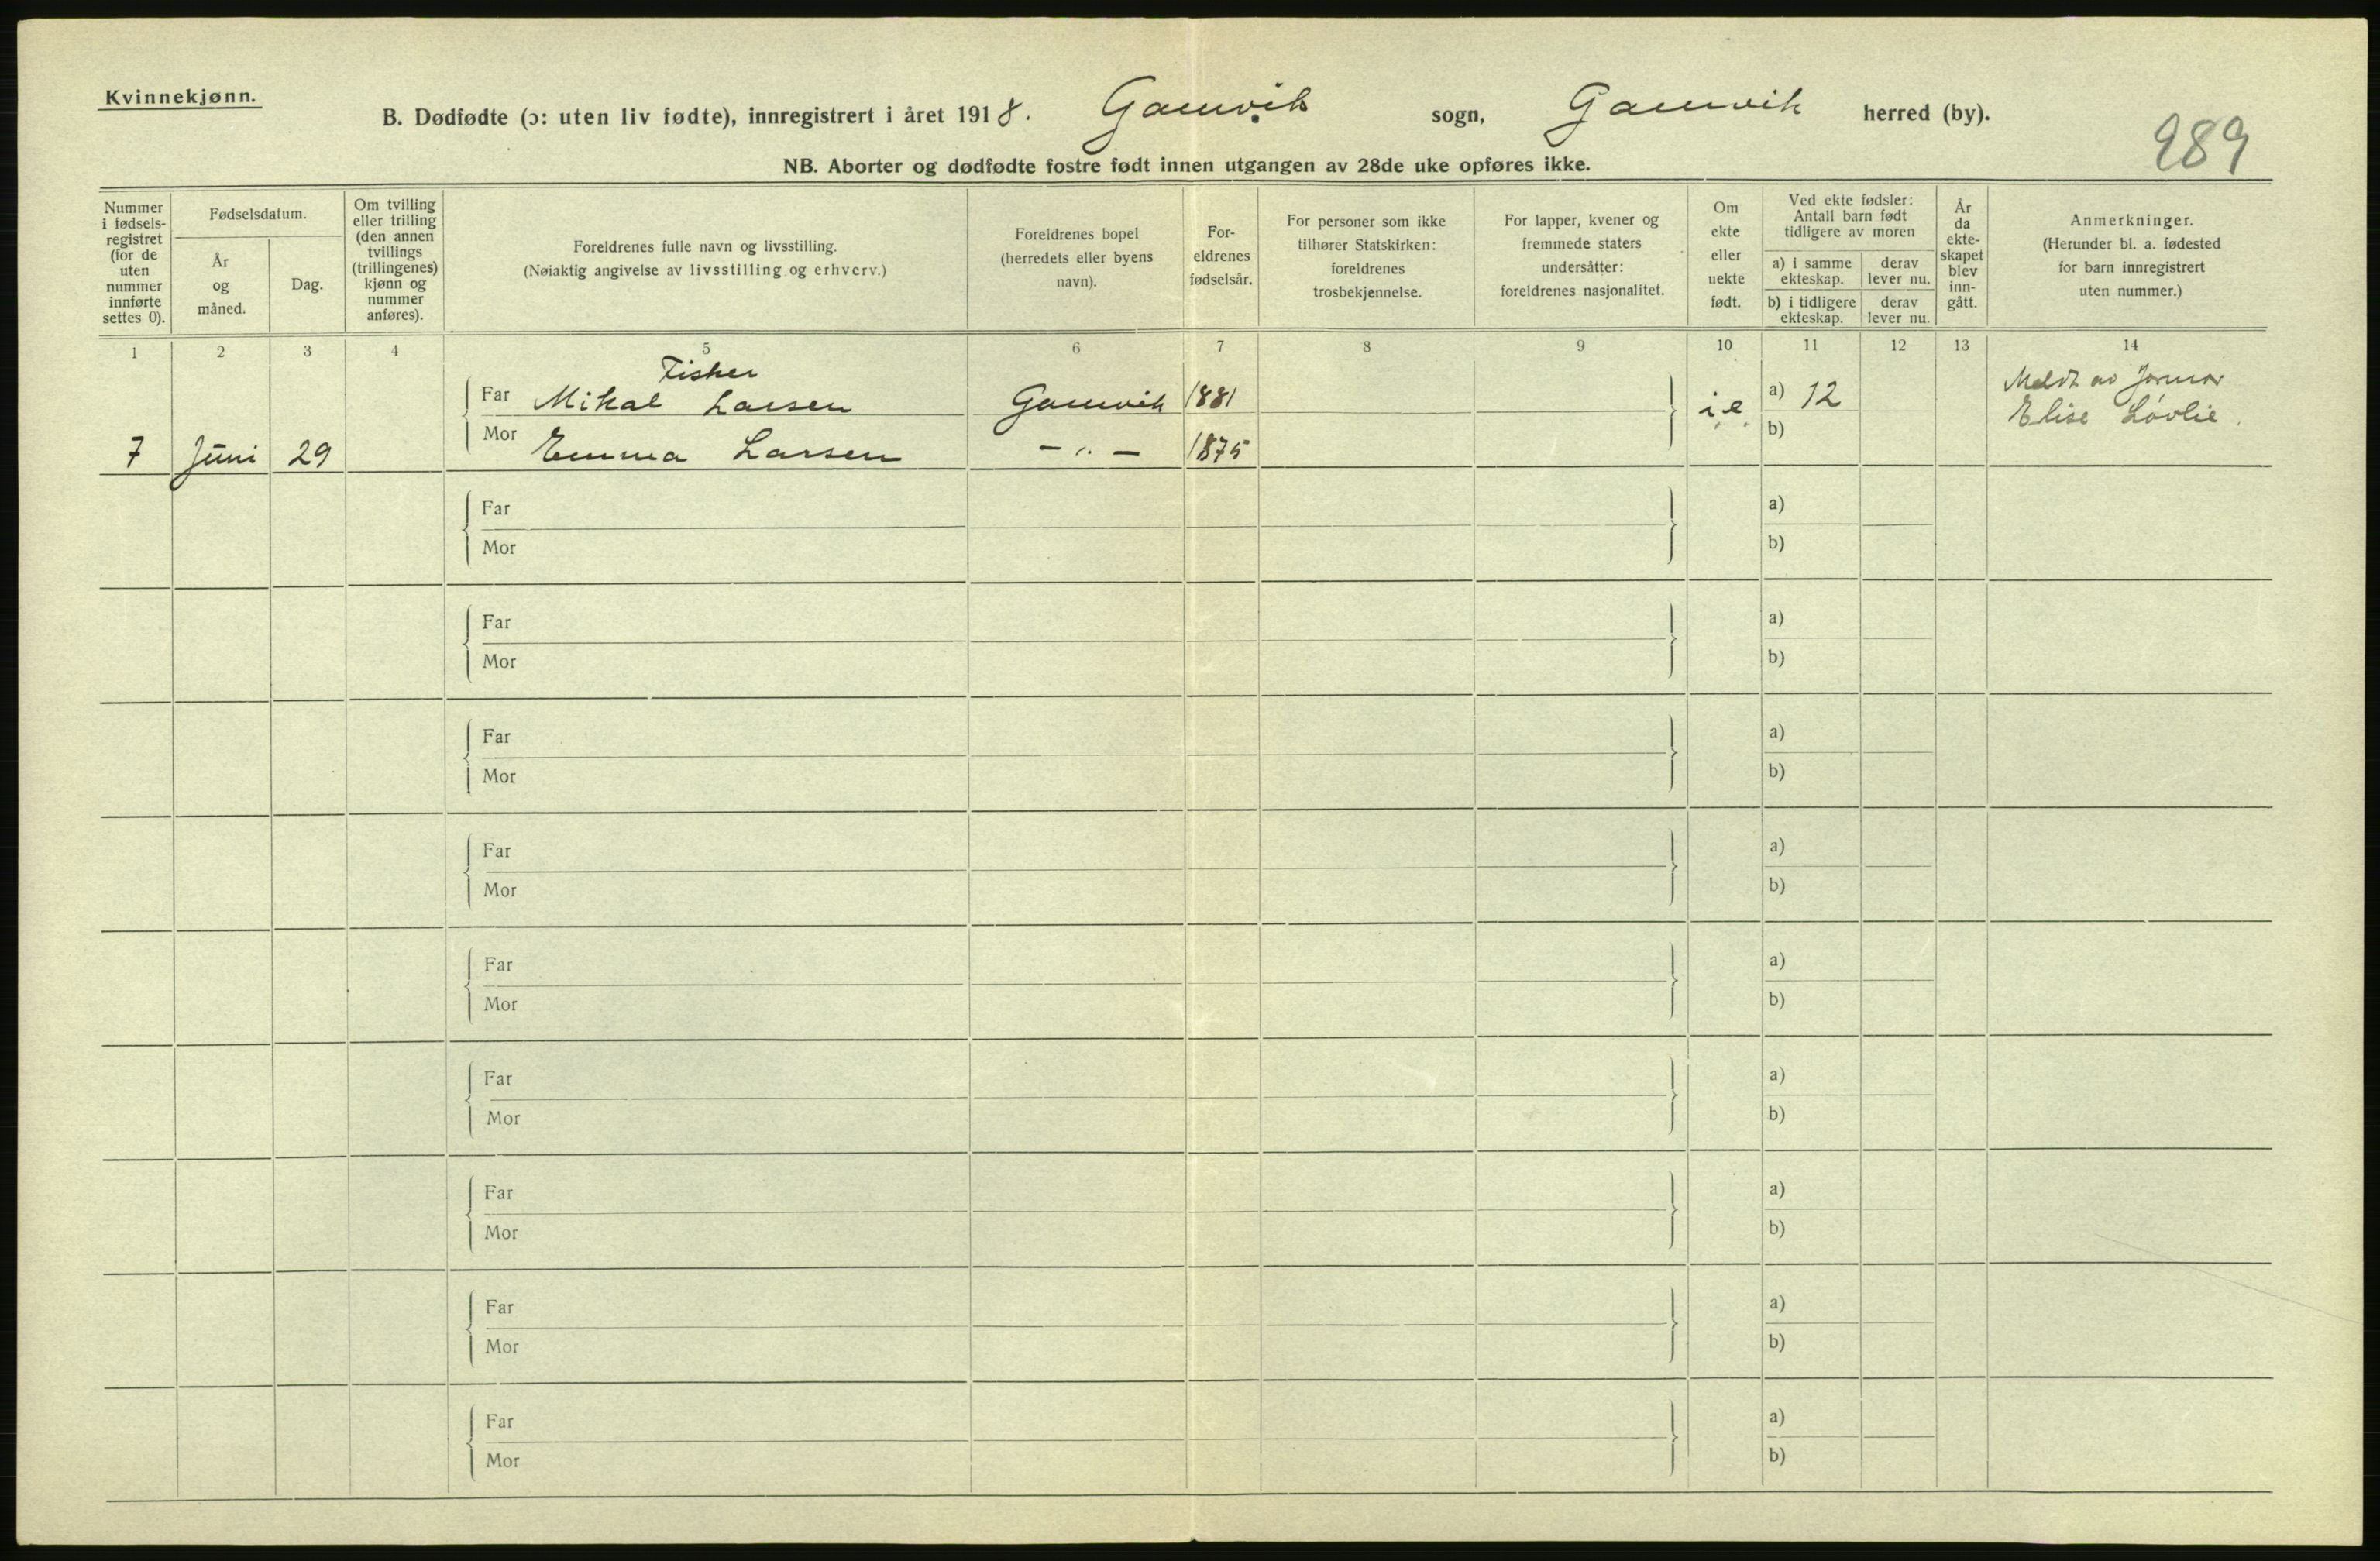 Kvinnekjønn.
B. Dødfødte (ɔ: uten liv fødte), innregistrert i året 1918. Gamvik sogn, Gamvik herred (by).
989
NB. Aborter og dødfødte fostre født innen utgangen av 28de uke opføres ikke.
Nummer i fødsels-registret (for de uten nummer innførte settes 0).
Fødselsdatum.
År og måned.
Dag.
Om tvilling eller trilling (den annen tvillings (trillingenes) kjønn og nummer anføres).
Foreldrenes fulle navn og livsstilling.
(Nøiaktig angivelse av livsstilling og erhverv.)
Foreldrenes bopel (herredets eller byens navn).
For-eldrenes fødselsår.
For personer som ikke tilhører Statskirken: foreldrenes trosbekjennelse.
For lapper, kvener og fremmede staters undersåtter: foreldrenes nasjonalitet.
Om ekte eller uekte født.
Ved ekte fødsler: Antall barn født tidligere av moren
a) i samme ekteskap.
derav lever nu.
b) i tidligere ekteskap.
derav lever nu.
År da ekte-skapet blev inn-gått.
Anmerkninger.
(Herunder bl. a. fødested for barn innregistrert uten nummer.)
1 2 3 4 5 6 7 8 9 10 11 12 13 14
Fisker
Far Mikal Larsen Gamvik 1881 i.e. a) 12 Meldt av Jormor
Elise Løvlie.
7 Juni 29 Mor Emma Larsen - " - 1875 b)
Far a)
Mor b)
Far a)
Mor b)
Far a)
Mor b)
Far a)
Mor b)
Far a)
Mor b)
Far a)
Mor b)
Far a)
Mor b)
Far a)
Mor b)
Far a)
Mor b)